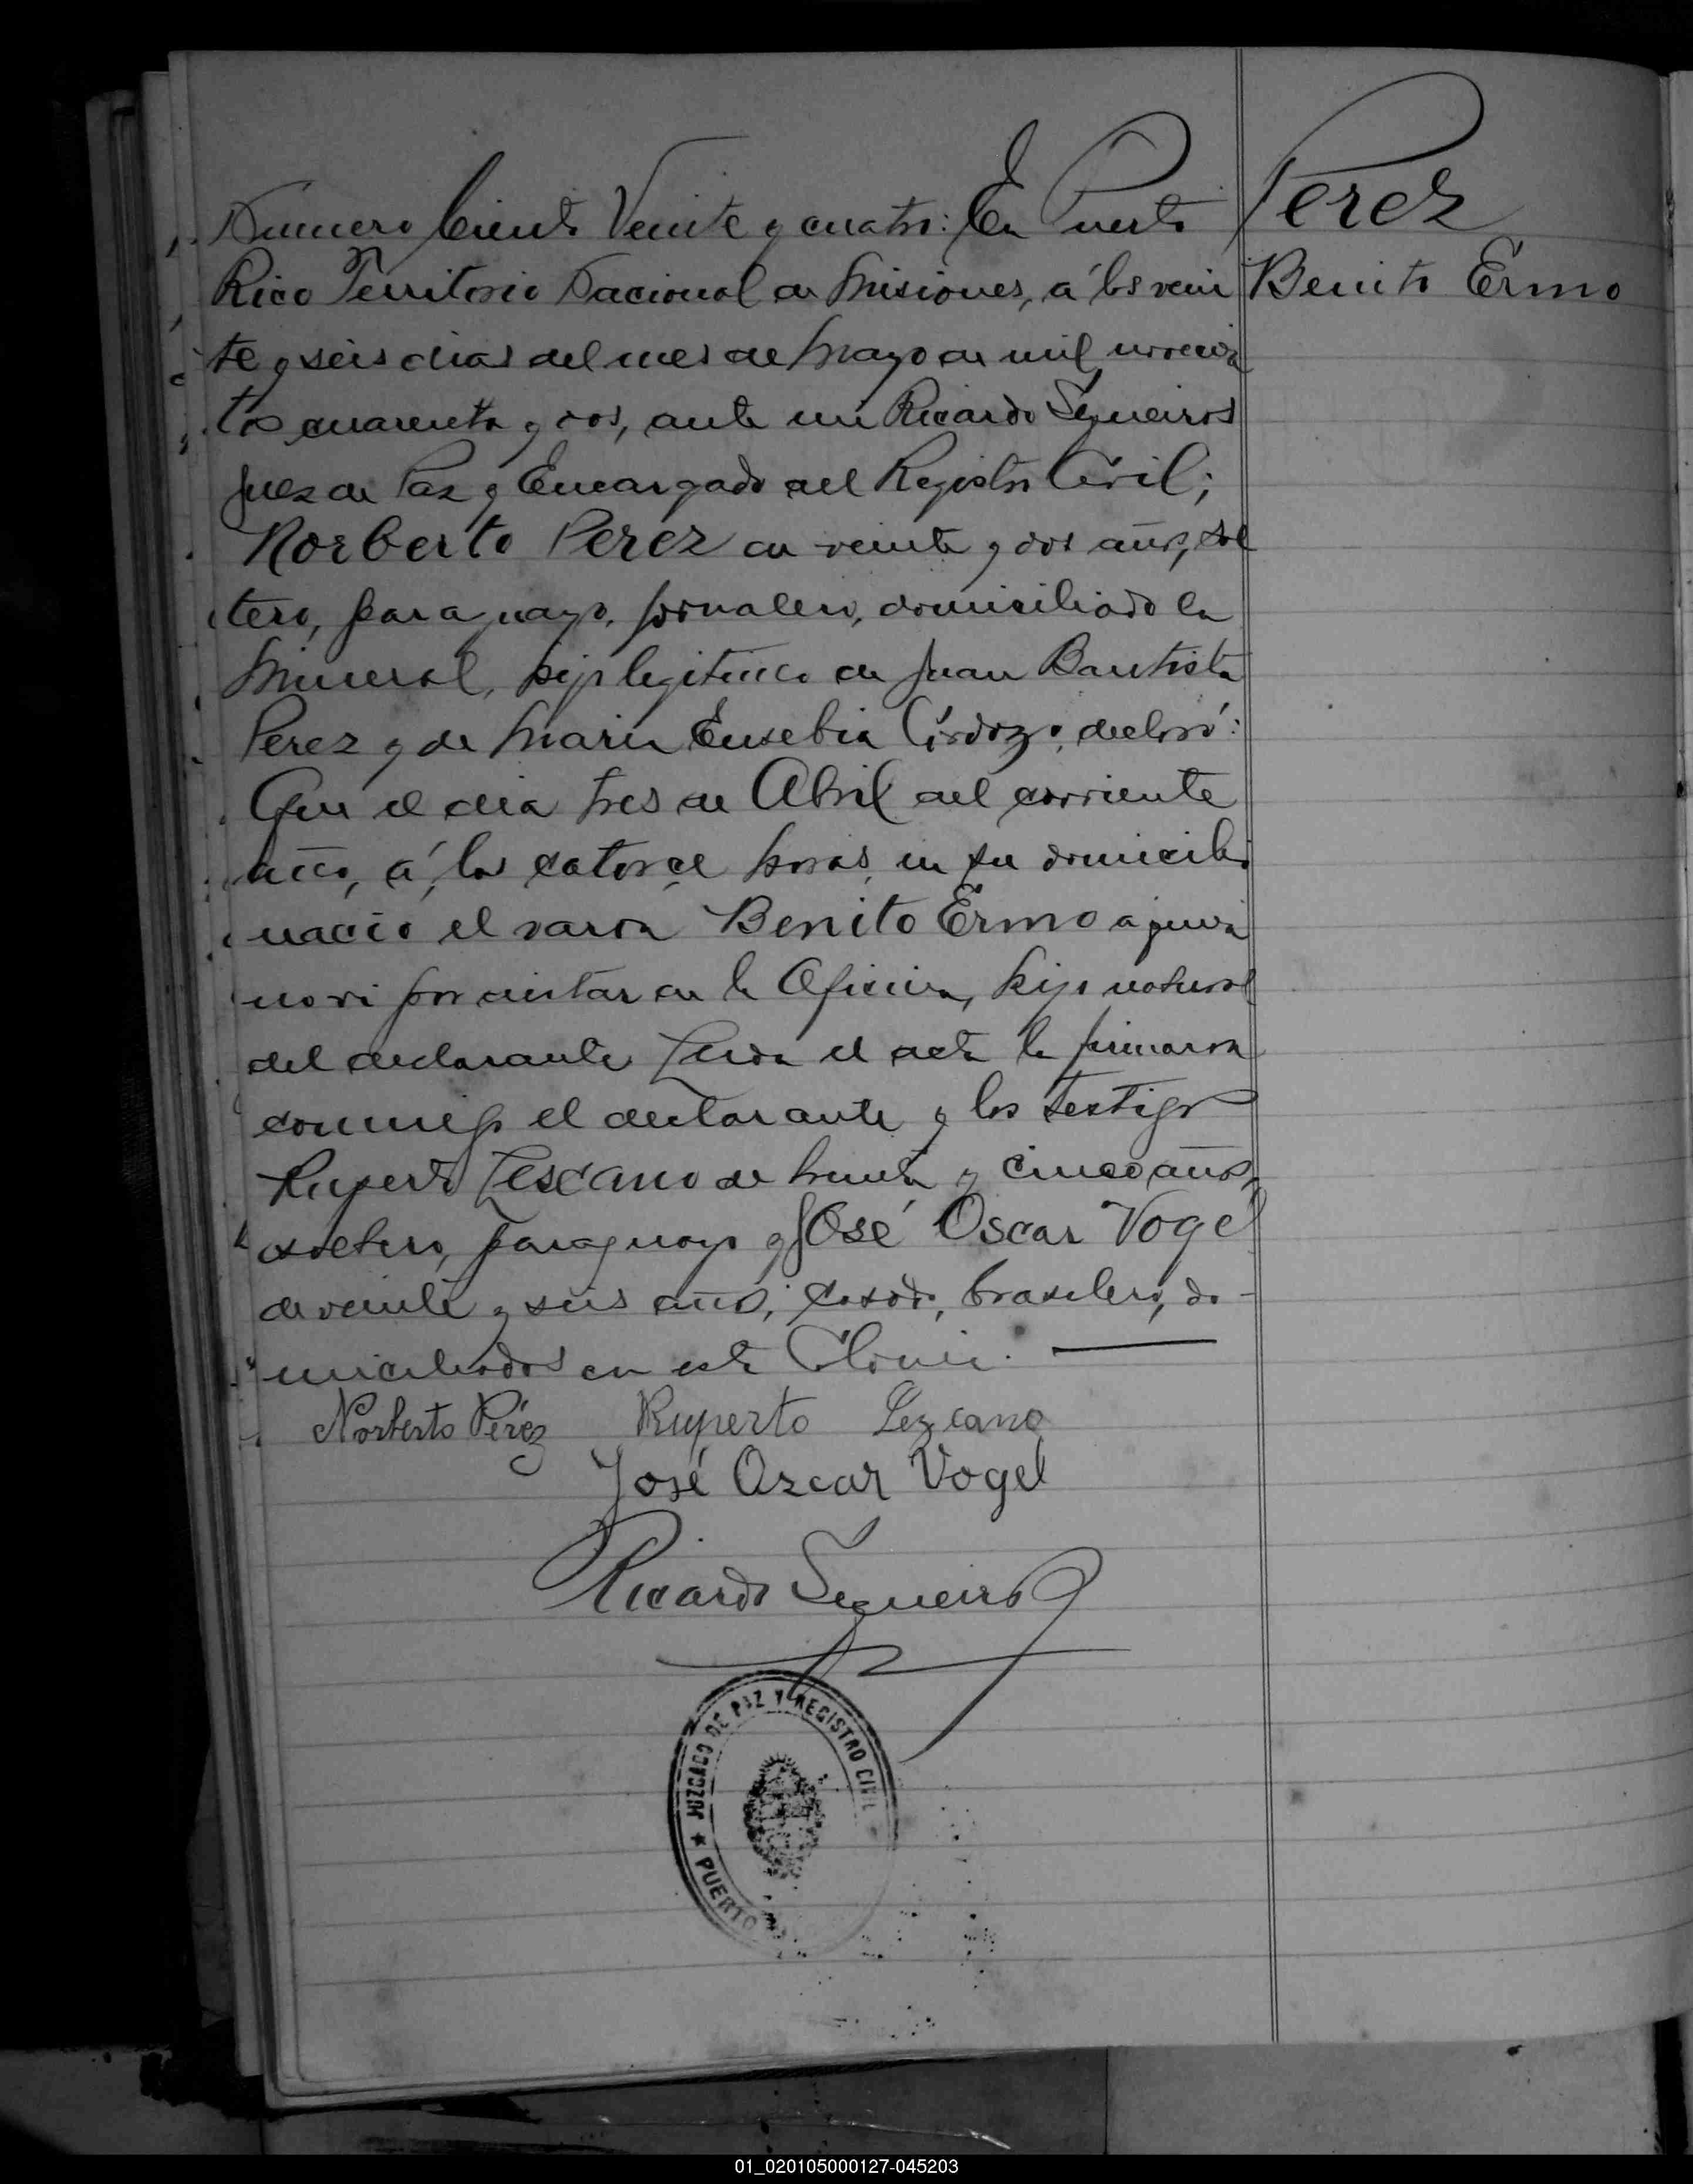 Numero Ciento Veinte y cuatro: En Puerto
Perez
Rico Territorio Nacional de Misiones, á los vein
Benito Ermo
te y seis dias del mes de Mayo de mil novecien
tos cuarenta y dos, ante mi Ricardo Sequeiros
Juez de Paz y Encargado del Registro Civil;
Norberto Perez de veinte y dos años, sol
tero, paraguayo, jornalero, domiciliado en
Mineral, hijo legitimo de Juan Bautista
Perez y de Maria Eusebia declaró:
Que el dia tres de Abril del corriente
año, á las catorce horas, en su domicilio
nació el varon Benito Ermo a quien
no vi por distar de la Oficina, hijo natural
del declarante Leida el acta la firmaron
conmigo el declarante y los testigos
Ruperto Lescano de treinta y cinco años,
soltero, paraguayo y José Oscar Vogel
de veinte y seis años, casado, brasilero, do-
miciliados en esta Colonia.
Norberto Pérez Ruperto Lezcano
José Ozcar Vogel
Ricardo Sequeiros
JUZGADO DE PAZ Y REGISTRO CIVIL
★ PUERTO
01_020105000127-045203